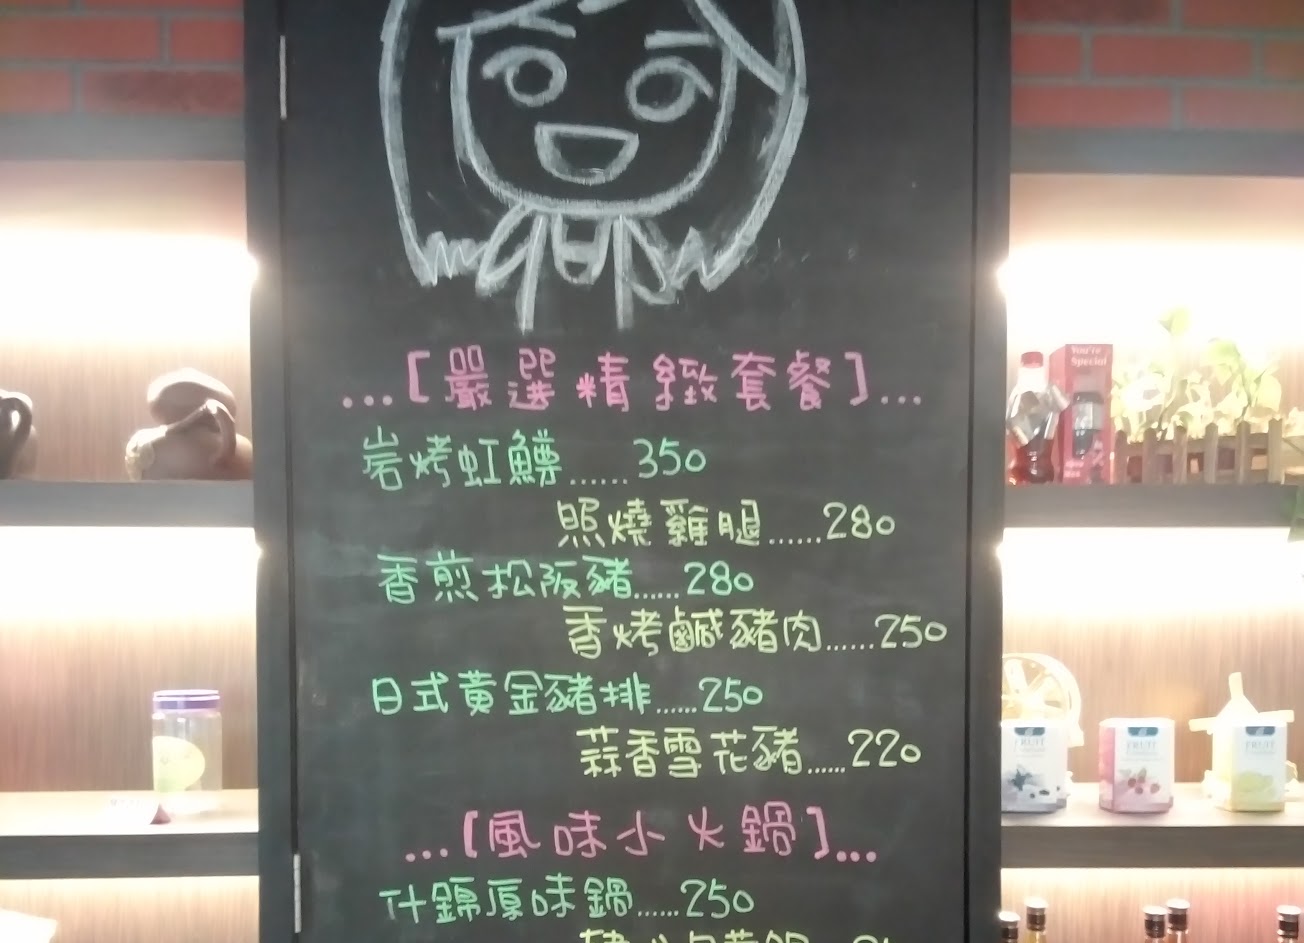 ...[嚴選精緻套餐]...
岩烤虹鱒......350
照燒雞腿......280
香煎松阪豬......280
香烤鹹豬肉......250
日式黃金豬排......250
蒜香雪花豬......220
...[風味小火鍋]...
什錦原味鍋......250
You're
Special
FRUIT
FRUIT
FRUIT